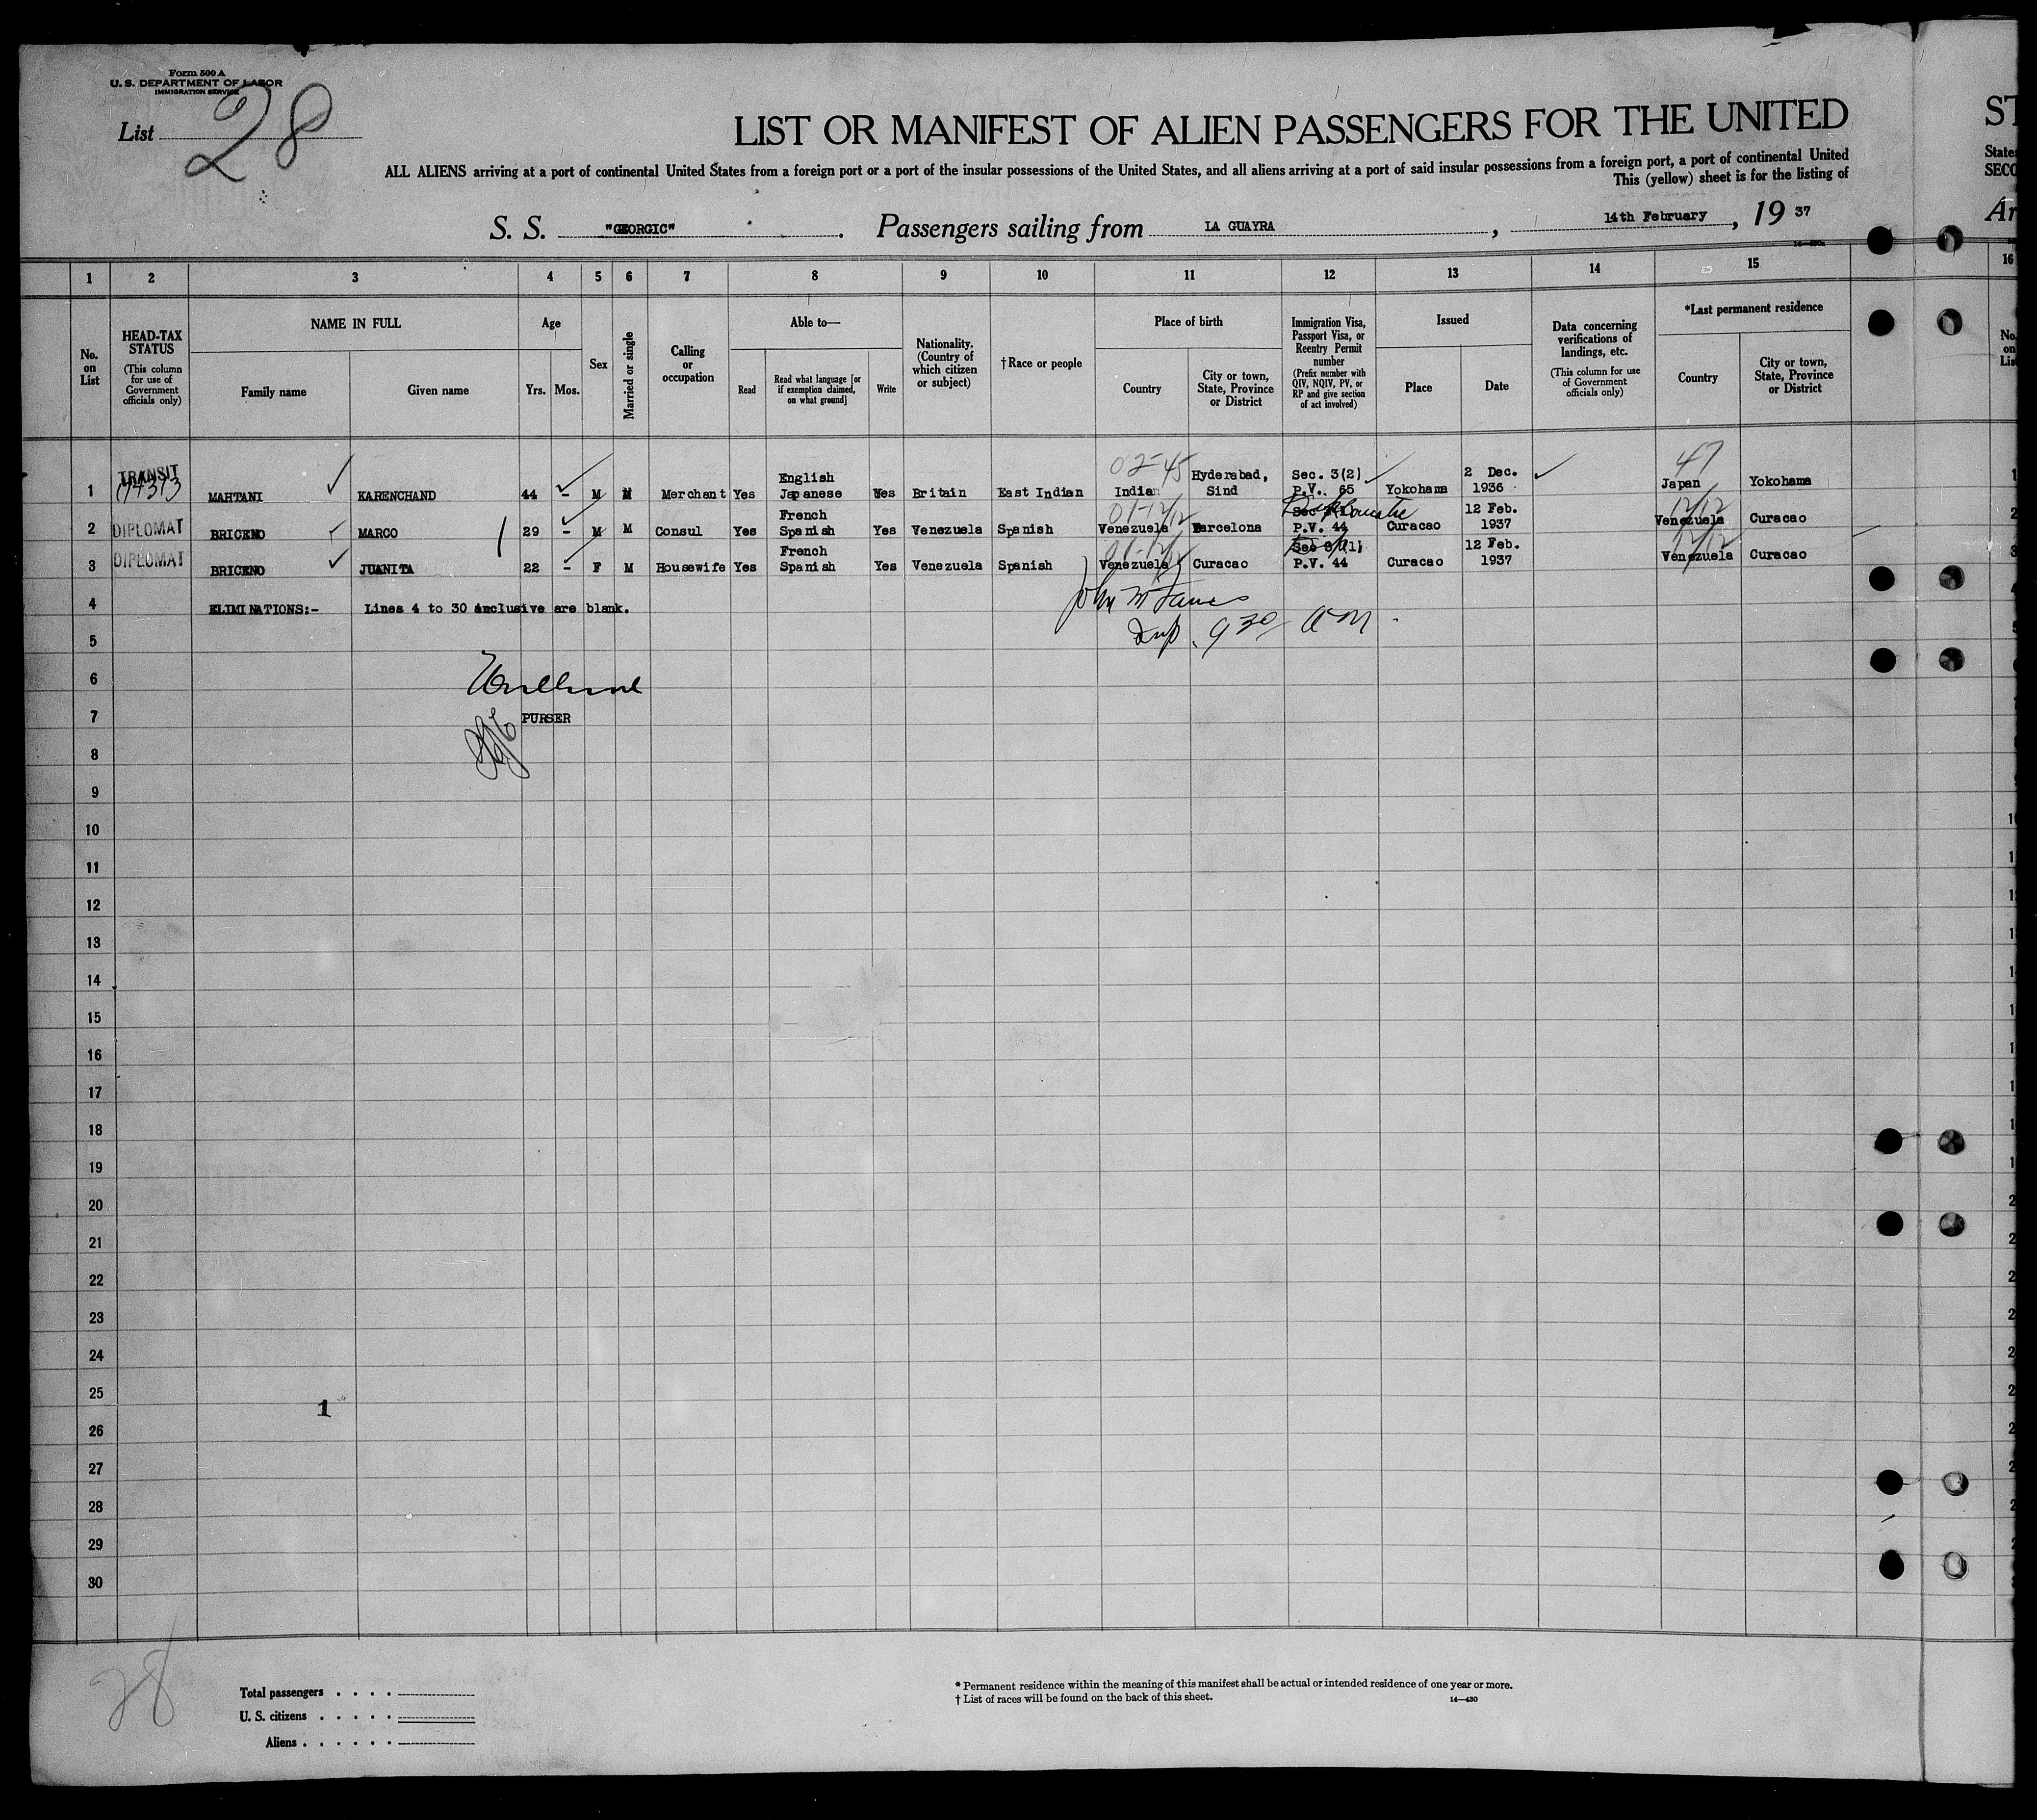 Form 500 A
U. S. DEPARTMENT OF LABOR
IMMIGRATION SERVICE
List 28
LIST OR MANIFEST OF ALIEN PASSENGERS FOR THE UNITED
ST
ALL ALIENS arriving at a port of continental United States from a foreign port or a port of the insular possessions of the United States, and all aliens arriving at a port of said insular possessions from a foreign port, a port of continental United
This (yellow) sheet is for the listing of
S. S. "GEORGIC". Passengers sailing from LA GUAYRA, 14th February, 19 37
1 2 3 4 5 6 7 8 9 10 11 12 13 14 15 16
No. on List
HEAD-TAX STATUS
(This column for use of Government officials only)
NAME IN FULL
Family name
Given name
Age
Yrs. Mos.
Sex
Married or single
Calling or occupation
Able to—
Read
Read what language [or if exemption claimed, on what ground]
Write
Nationality. (Country of which citizen or subject)
† Race or people
Place of birth
Country
City or town, State, Province or District
Immigration Visa, Passport Visa, or Reentry Permit number
(Prefix number with QIV, NQIV, PV, or RP and give section of act involved)
Issued
Place
Date
Data concerning verifications of landings, etc.
(This column for use of Government officials only)
*Last permanent residence
Country
City or town, State, Province or District
1 TRANSIT MAHTANI KARENCHAND 44 - M M Merchant Yes English Japanese Yes Britain East Indian Indian Hyderabad, Sind Sec. 3(2) P.V. 65 Yokohama 2 Dec. 1936 Japan Yokohama
2 DIPLOMAT BRICENO MARCO 29 - M M Consul Yes French Spanish Yes Venezuela Spanish Venezuela Barcelona P.V. 44 Curacao 12 Feb. 1937 Venezuela Curacao
3 DIPLOMAT BRICENO JUANITA 22 - F M Housewife Yes French Spanish Yes Venezuela Spanish Venezuela Curacao Sec 3(1) P.V. 44 Curacao 12 Feb. 1937 Venezuela Curacao
4 ELIMINATIONS:- Lines 4 to 30 inclusive are blank.
5
6
7 PURSER
8
9
10
11
12
13
14
15
16
17
18
19
20
21
22
23
24
25
1
26
27
28
29
30
28
Total passengers
U. S. citizens
Aliens
* Permanent residence within the meaning of this manifest shall be actual or intended residence of one year or more.
† List of races will be found on the back of this sheet.
14—430